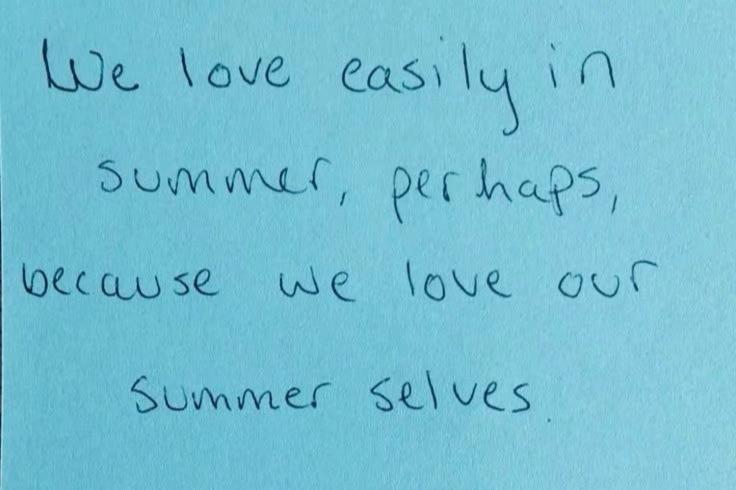 We love easily in
summer, perhaps,
because we love our
summer selves.